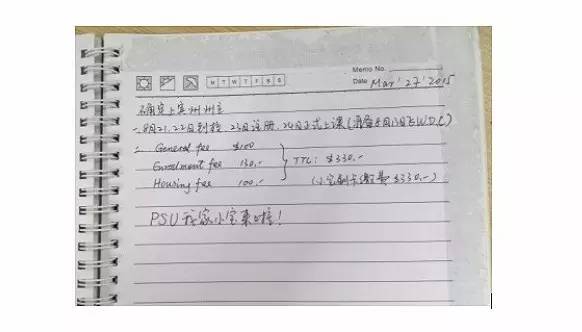 Memo No.
M T W T F S S
Date Mar' 27' 2015
确定上宾州州立
一. 8月21,22日到校, 23日注册, 24日正式上课(8月13日飞W.D.C)
General fee $100
Enrolment fee 130.- TTL: $330.-
Housing fee 100.- (小宝刷卡缴费 $330.-)
PSU 我家小宝来啦!